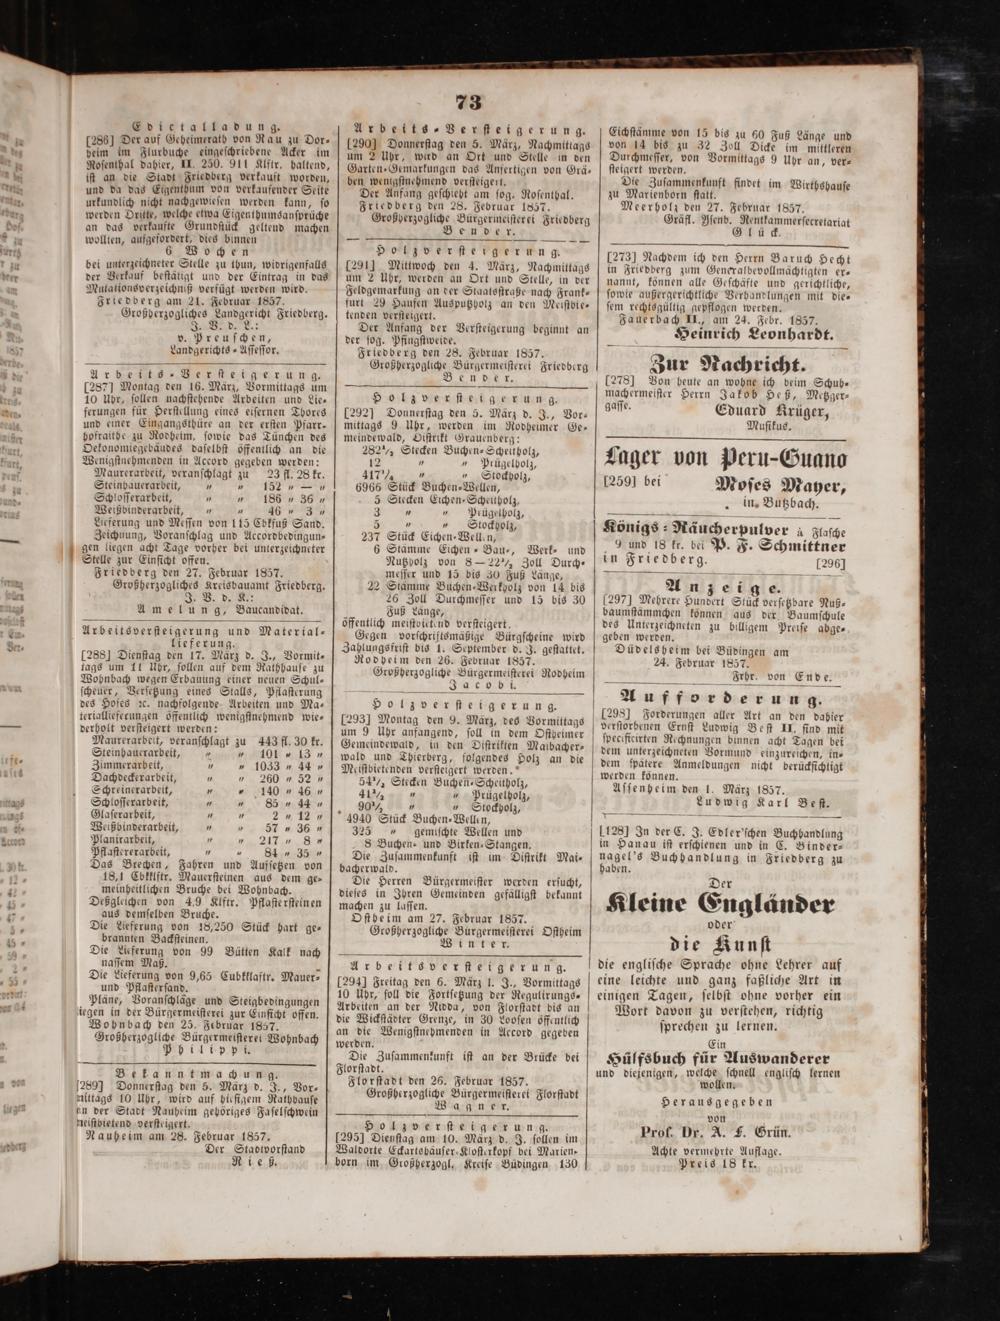 73
Edictalladung.
[286] Der auf Geheimerath von Rau zu Dor-
heim im Flurbuche eingeschriebene Acker im
Rosenthal dahier, II. 250. 911 Klftr. haltend,
ist an die Stadt Friedberg verkauft worden,
und da das Eigenthum von verkaufender Seite
urkundlich nicht nachgewiesen werden kann, so
werden Dritte, welche etwa Eigenthumsansprüche
an das verkaufte Grundstück geltend machen
wollten, aufgefordert, dies binnen
6 Wochen
bei unterzeichneter Stelle zu thun, widrigenfalls
der Verkauf bestätigt und der Eintrag in das
Mutationsverzeichniß verfügt werden wird.
Friedberg am 21. Februar 1857.
Großherzogliches Landgericht Friedberg.
J. V. d. L.:
v. Preuschen,
Landgerichts-Assessor.
Arbeits-Versteigerung.
[287] Montag den 16. März, Vormittags um
10 Uhr, sollen nachstehende Arbeiten und Lie-
ferungen für Herstellung eines eisernen Thores
und einer Eingangsthüre an der ersten Pfarr-
hofraithe zu Rodheim, sowie das Tünchen des
Oekonomiegebäudes daselbst öffentlich an die
Wenigstnehmenden in Accord gegeben werden:
Maurerarbeit, veranschlagt zu 23 fl. 28 kr.
Steinhauerarbeit, " " 152 " — "
Schlosserarbeit, " " 186 " 36 "
Weißbinderarbeit, " " 46 " 3 "
Lieferung und Messen von 115 Cbkfuß Sand.
Zeichnung, Voranschlag und Accordbedingun-
gen liegen acht Tage vorher bei unterzeichneter
Stelle zur Einsicht offen.
Friedberg den 27. Februar 1857.
Großherzogliches Kreisbauamt Friedberg.
J. V. d. K.:
Amelung, Baucandidat.
Arbeitsversteigerung und Material-
lieferung.
[288] Dienstag den 17. März d. J., Vormit-
tags um 11 Uhr, sollen auf dem Rathhause zu
Wohnbach wegen Erbauung einer neuen Schul-
scheuer, Versetzung eines Stalls, Pflasterung
des Hofes ꝛc. nachfolgende Arbeiten und Ma-
teriallieferungen öffentlich wenigstnehmend wie-
derholt versteigert werden:
Maurerarbeit, veranschlagt zu 443 fl. 30 kr.
Steinhauerarbeit, " " 101 " 13 "
Zimmerarbeit, " " 1033 " 44 "
Dachdeckerarbeit, " " 260 " 52 "
Schreinerarbeit, " " 140 " 46 "
Schlosserarbeit, " " 85 " 44 "
Glaserarbeit, " " 2 " 12 "
Weißbinderarbeit, " " 57 " 36 "
Planirarbeit, " " 217 " 8 "
Pflastererarbeit, " " 84 " 35 "
Das Brechen, Fahren und Aufsetzen von
18,1 Cbkklftr. Mauersteinen aus dem ge-
meinheitlichen Bruche bei Wohnbach.
Deßgleichen von 4,9 Klftr. Pflastersteinen
aus demselben Bruche.
Die Lieferung von 18,250 Stück hart ge-
brannten Backsteinen.
Die Lieferung von 99 Bütten Kalk nach
nassem Maß.
Die Lieferung von 9,65 Cubkklaftr. Mauer-
und Pflastersand.
Pläne, Voranschläge und Steigbedingungen
liegen in der Bürgermeisterei zur Einsicht offen.
Wohnbach den 25. Februar 1857.
Großherzogliche Bürgermeisterei Wohnbach
Philippi.
Bekanntmachung.
[289] Donnerstag den 5. März d. J., Vor-
mittags 10 Uhr, wird auf hiesigem Rathhause
ein der Stadt Nauheim gehöriges Faselschwein
meistbietend versteigert.
Nauheim am 28. Februar 1857.
Der Stadtvorstand
Rieß.
Arbeits-Versteigerung.
[290] Donnerstag den 5. März, Nachmittags
um 2 Uhr, wird an Ort und Stelle in den
Garten-Gemarkungen das Anfertigen von Grä-
ben wenigstnehmend versteigert.
Der Anfang geschieht am sog. Rosenthal.
Friedberg den 28. Februar 1857.
Großherzogliche Bürgermeisterei Friedberg
Bender.
Holzversteigerung.
[291] Mittwoch den 4. März, Nachmittags
um 2 Uhr, werden an Ort und Stelle, in der
Feldgemarkung an der Staatsstraße nach Frank-
furt 29 Haufen Ausputzholz an den Meistbie-
tenden versteigert.
Der Anfang der Versteigerung beginnt an
der sog. Pfingstweide.
Friedberg den 28. Februar 1857.
Großherzogliche Bürgermeisterei Friedberg
Bender.
Holzversteigerung.
[292] Donnerstag den 5. März d. J., Vor-
mittags 9 Uhr, werden im Rodheimer Ge-
meindewald, Distrikt Grauenberg:
282½ Stecken Buchen-Scheitholz,
12 " " Prügelholz,
417½ " " Stockholz,
6966 Stück Buchen-Wellen,
5 Stecken Eichen-Scheitholz,
3 " " Prügelholz,
5 " " Stockholz,
237 Stück Eichen-Wellen,
6 Stämme Eichen-Bau-, Werk- und
Nutzholz von 8—22½ Zoll Durch-
messer und 15 bis 30 Fuß Länge,
22 Stämme Buchen-Werkholz von 14 bis
26 Zoll Durchmesser und 15 bis 30
Fuß Länge,
öffentlich meistbietend versteigert.
Gegen vorschriftsmäßige Bürgscheine wird
Zahlungsfrist bis 1. September d. J. gestattet.
Rodheim den 26. Februar 1857.
Großherzogliche Bürgermeisterei Rodheim
Jacobi.
Holzversteigerung.
[293] Montag den 9. März, des Vormittags
um 9 Uhr anfangend, soll in dem Ostheimer
Gemeindewald, in den Distrikten Maibacher-
wald und Thierberg, folgendes Holz an die
Meistbietenden versteigert werden.
54½ Stecken Buchen-Scheitholz,
41½ " " Prügelholz,
90½ " " Stockholz,
4940 Stück Buchen-Wellen,
325 " gemischte Wellen und
8 Buchen- und Birken-Stangen.
Die Zusammenkunft ist im Distrikt Mai-
bacherwald.
Die Herren Bürgermeister werden ersucht,
dieses in Ihren Gemeinden gefälligst bekannt
machen zu lassen.
Ostheim am 27. Februar 1857.
Großherzogliche Bürgermeisterei Ostheim
Winter.
Arbeitsversteigerung.
[294] Freitag den 6. März l. J., Vormittags
10 Uhr, soll die Fortsetzung der Regulirungs-
Arbeiten an der Nidda, von Florstadt bis an
die Wickstädter Grenze, in 30 Loosen öffentlich
an die Wenigstnehmenden in Accord gegeben
werden.
Die Zusammenkunft ist an der Brücke bei
Florstadt.
Florstadt den 26. Februar 1857.
Großherzogliche Bürgermeisterei Florstadt
Wagner.
Holzversteigerung.
[295] Dienstag am 10. März d. J. sollen im
Waldorte Eckartshäuser-Klosterkopf bei Marien-
born im Großherzogl. Kreise Büdingen 130
Eichstämme von 15 bis zu 60 Fuß Länge und
von 14 bis zu 32 Zoll Dicke im mittleren
Durchmesser, von Vormittags 9 Uhr an, ver-
steigert werden.
Die Zusammenkunft findet im Wirthshause
zu Marienborn statt.
Meerholz den 27. Februar 1857.
Gräfl. Ysenb. Rentkammersecretariat
Glück.
[273] Nachdem ich den Herrn Baruch Hecht
in Friedberg zum Generalbevollmächtigten er-
nannt, können alle Geschäfte und gerichtliche,
sowie außergerichtliche Verhandlungen mit die-
sem rechtsgültig gepflogen werden.
Fauerbach II., am 24. Febr. 1857.
Heinrich Leonhardt.
Zur Nachricht.
[278] Von heute an wohne ich beim Schuh-
machermeister Herrn Jakob Heß, Metzger-
gasse.
Eduard Krüger,
Musikus.
Lager von Peru-Guano
[259] bei Moses Mayer,
in Butzbach.
Königs-Räucherpulver à Flasche
9 und 18 kr. bei P. F. Schmittner
in Friedberg. [296]
Anzeige.
[297] Mehrere Hundert Stück versetzbare Nuß-
baumstämmchen können aus der Baumschule
des Unterzeichneten zu billigem Preise abge-
geben werden.
Düdelsheim bei Büdingen am
24. Februar 1857.
Frhr. von Ende.
Aufforderung.
[298] Forderungen aller Art an den dahier
verstorbenen Ernst Ludwig Best II. sind mit
specificirten Rechnungen binnen acht Tagen bei
dem unterzeichneten Vormund einzureichen, in-
dem spätere Anmeldungen nicht berücksichtigt
werden können.
Assenheim den 1. März 1857.
Ludwig Karl Best.
[128] In der C. J. Edler'schen Buchhandlung
in Hanau ist erschienen und in C. Binder-
nagel's Buchhandlung in Friedberg zu
haben.
Der
Kleine Engländer
oder
die Kunst
die englische Sprache ohne Lehrer auf
eine leichte und ganz faßliche Art in
einigen Tagen, selbst ohne vorher ein
Wort davon zu verstehen, richtig
sprechen zu lernen.
Ein
Hülfsbuch für Auswanderer
und diejenigen, welche schnell englisch lernen
wollen.
Herausgegeben
von
Prof. Dr. A. F. Grün.
Achte vermehrte Auflage.
Preis 18 kr.